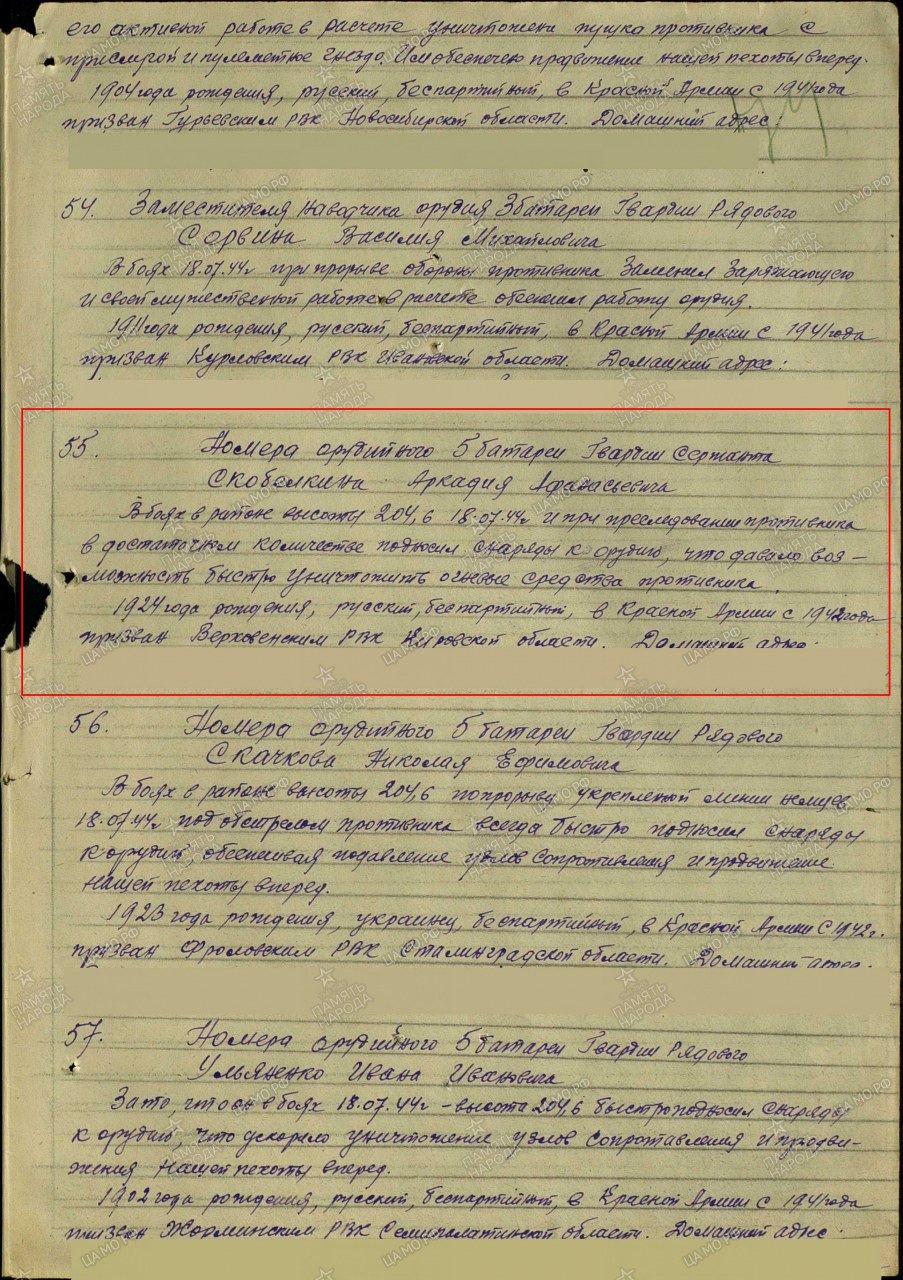 его активной работе в расчете уничтожена пушка противника с
прислугой и пулеметное гнездо. Чем обеспечено продвижение нашей пехоты вперед.
1904 года рождения, русский, беспартийный, в Красной Армии с 1941 года
призван Гурьевским РВК Новосибирской области. Домашний адрес:
54. Заместителя наводчика орудия 3 батареи Гвардии Рядового
Сорвина Василия Михайловича
В боях 18.07.44г при прорыве обороны противника Заменил Заряжающего
и своей мужественной работе в расчете обеспечил работу орудия.
1911 года рождения, русский, беспартийный, в Красной Армии с 1941 года
призван Курловским РВК Ивановской области. Домашний адрес:
55. Номера орудийного 5 батареи Гвардии Сержанта
Скобелкина Аркадия Афанасьевича
В боях в районе высоты 204,6 18.07.44г и при преследовании противника
в достаточном количестве подносил снаряды к орудию, что давало воз-
можность быстро уничтожить огневые средства противника.
1924 года рождения, русский, беспартийный, в Красной Армии с 1942 года
призван Верховенским РВК Кировской области. Домашний адрес:
56. Номера орудийного 5 батареи Гвардии Рядового
Скачкова Николая Ефимовича
В боях в районе высоты 204,6 по прорыву укрепленой линии немцев
18.07.44г под обстрелом противника всегда быстро подносил снаряды
к орудию, обеспечивая подавление узлов сопротивления и продвижение
нашей пехоты вперед.
1923 года рождения, украинец, беспартийный, в Красной Армии с 1942г.
призван Фроловским РВК Сталинградской области. Домашний адрес.
57. Номера орудийного 5 батареи Гвардии Рядового
Ульяненко Ивана Ивановича
За то, что он в боях 18.07.44г - высота 204,6 быстро подносил снаряды
к орудию, что ускорило уничтожение узлов сопротавления и продви-
жения нашей пехоты вперед.
1902 года рождения, русский, беспартийный, в Красной Армии с 1941 года
призван Жарминским РВК Семипалатинской области. Домашний адрес:
ПАМЯТЬ НАРОДА
ЦАМО.РФ